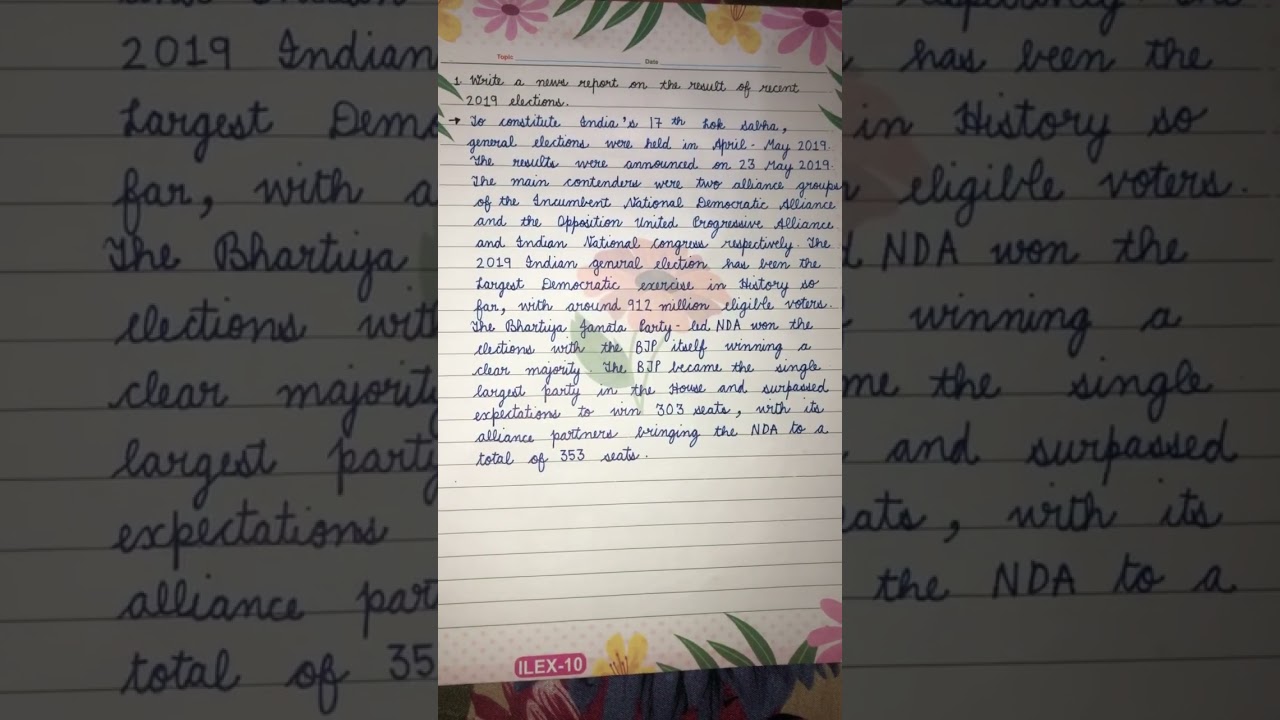 Topic Date
1. Write a news report on the result of recent
2019 elections.
→ To constitute India's 17 th Lok Sabha,
general elections were held in April - May 2019.
The results were announced on 23 May 2019.
The main contenders were two alliance groups
of the Incumbent National Democratic Alliance
and the Opposition United Progressive Alliance
and Indian National congress respectively. The
2019 Indian general election has been the
Largest Democratic exercise in History so
far, with around 912 million eligible voters.
The Bhartiya Janata Party - led NDA won the
elections with the BJP itself winning a
clear majority. The BJP became the single
largest party in the House and surpassed
expectations to win 303 seats, with its
alliance partners bringing the NDA to a
total of 353 seats.
ILEX-10